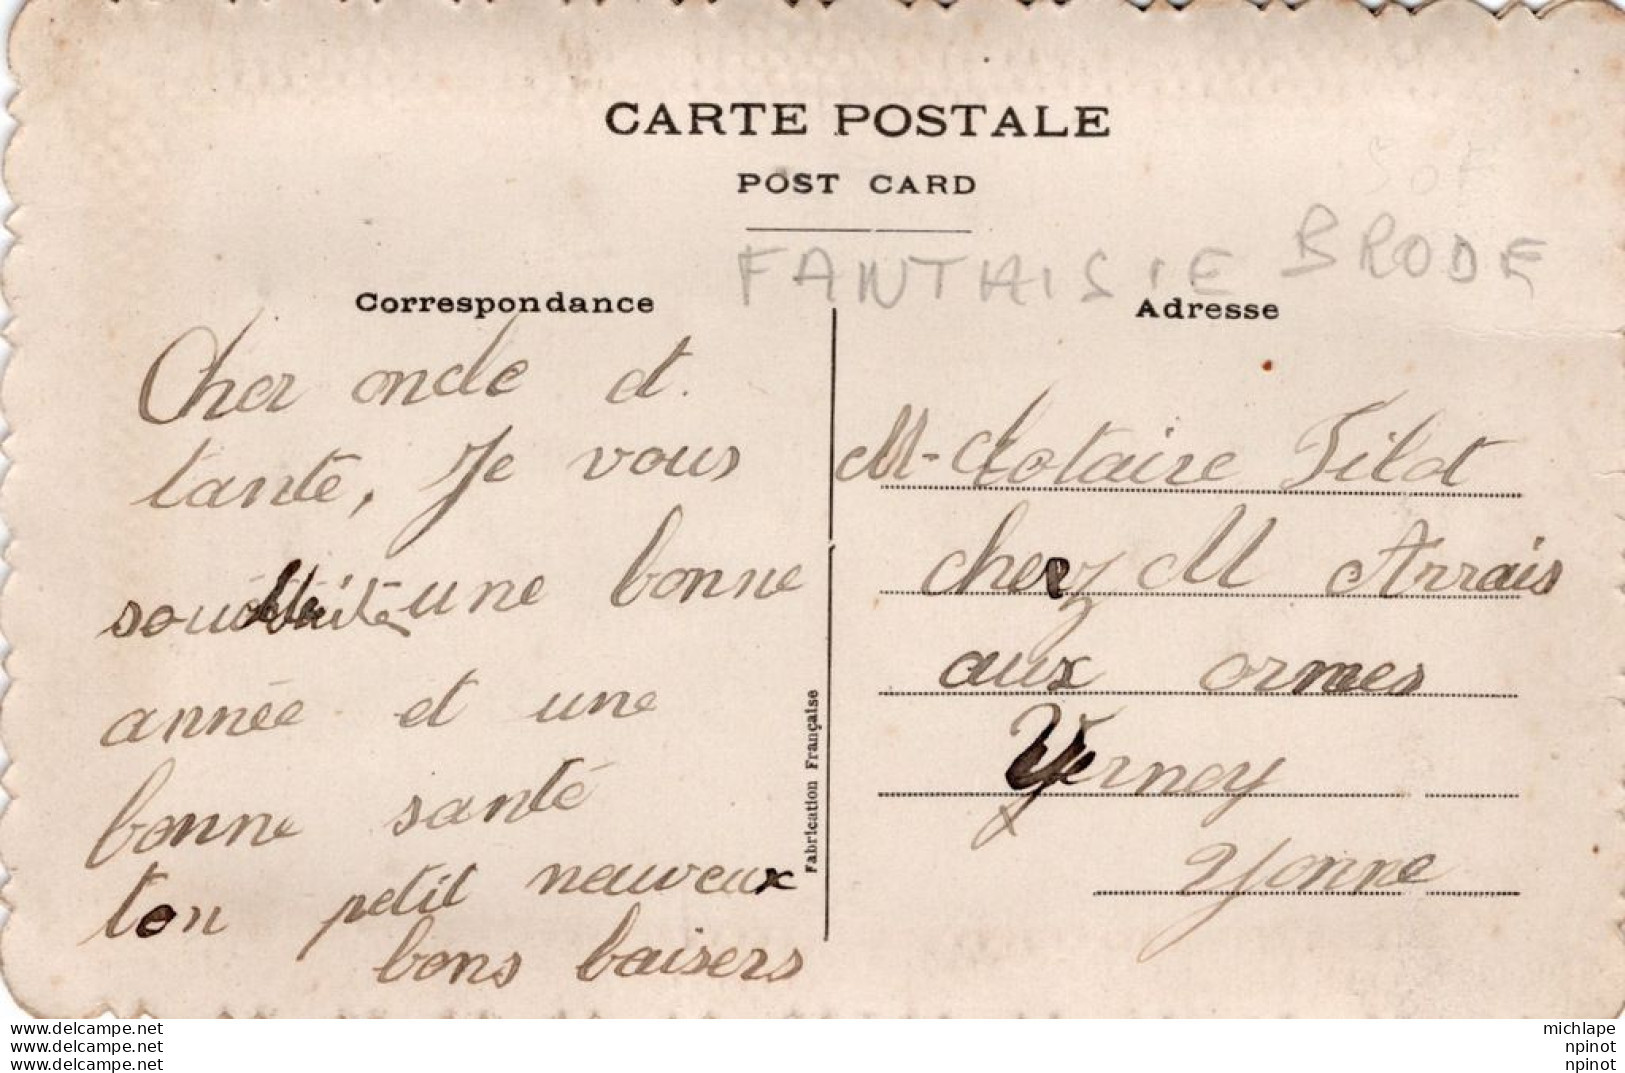 CARTE POSTALE
POST CARD
50F
FANTHISIE BRODE
Correspondance
Cher oncle et
tante, Je vous
souhaite une bonne
année et une
bonne santé
ton petit neuveux
bons baisers
Fabrication Française
Adresse
M. Clotaire Pilot
chez M Arrais
aux ormes
Vernoy
Yonne
www.delcampe.net
www.delcampe.net
www.delcampe.net
michlape
npinot
npinot